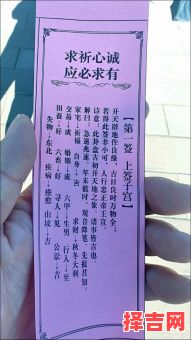 求祈心诚
应必求有
【第一签 上签子宫】
开天辟地作良缘，吉日良时万物全；
若得此签非小可，人行忠正帝王宣。
诗意：此卦盘古初开天地之象，诸事皆吉也。
解曰：急速兆速，年未值时，观音降笔，先报君知。
家宅→祈福 自身→吉 求财→秋冬大利
交易→成 婚姻→成 六甲→生男 行人→至
田蚕→好 六畜→好 寻人→见 公讼→吉
失物→东北 疾病→瘥愈 山坟→吉
择吉网